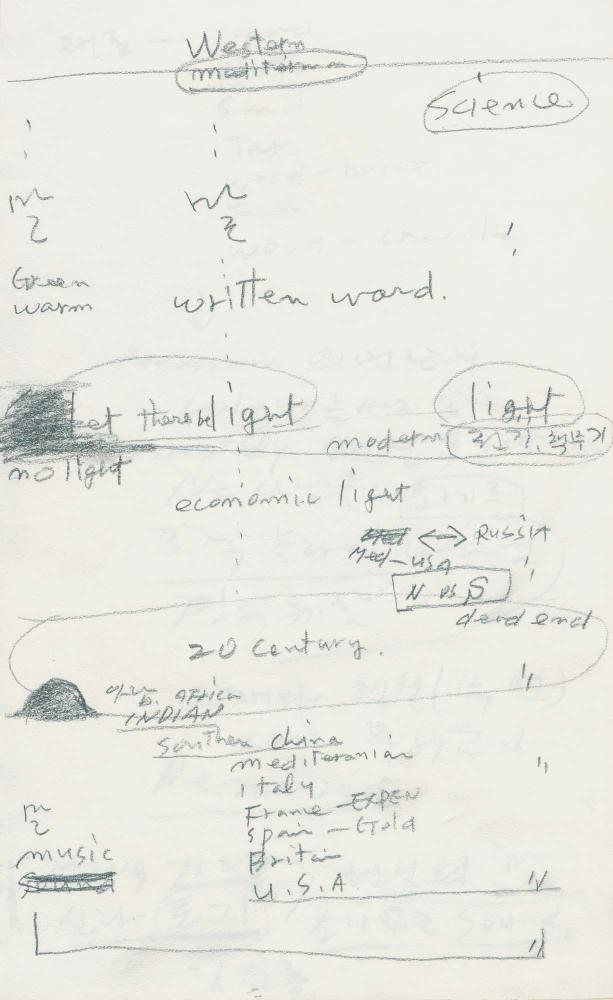 Western
mediterran
Science
Green
warm
written word.
Let there be light
light
modern
no light
economic light
Med-USA ↔ RUSSIA
N vs S
dead end
20 Century.
b. Africa
INDIAN
Southern China
mediteranian
italy
France - EXPEN
Spain - Gold
Britain
U.S.A
music
Sound